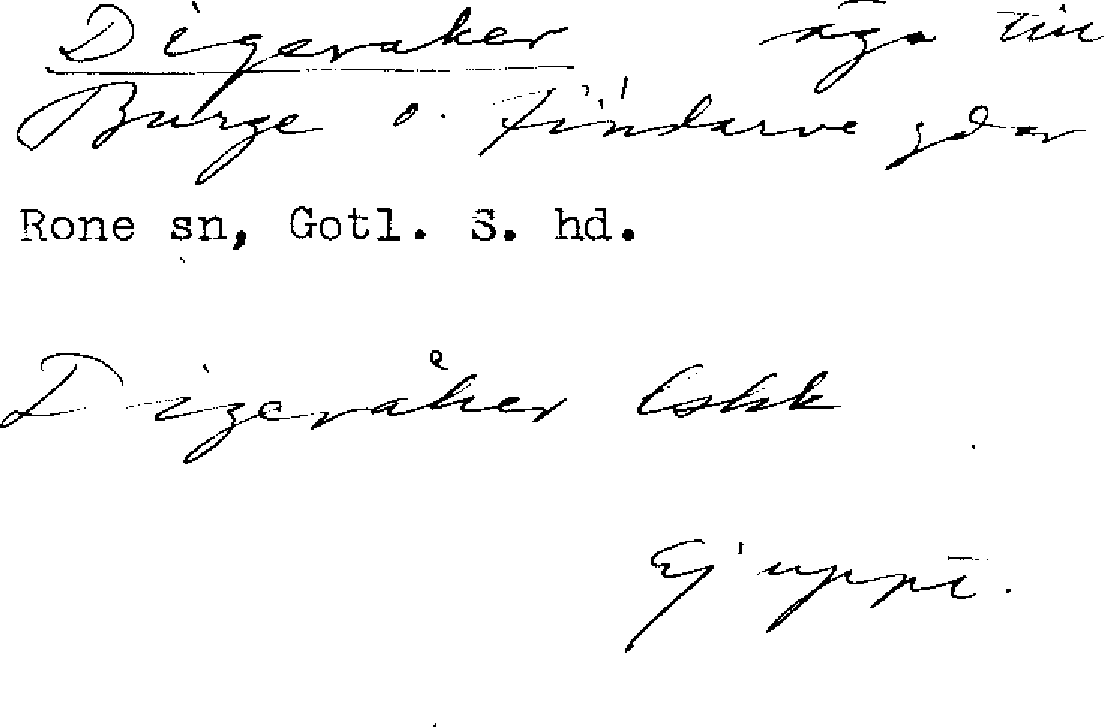 Digeraker äga till
Burge o. Tindarve gdar
Rone sn, Gotl. S. hd.
Digeråker Eskk
Ej uppt.